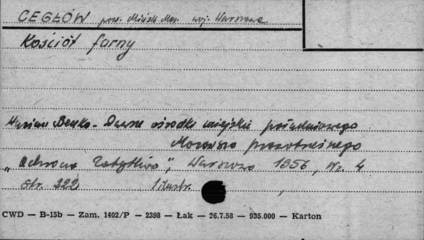 CEGŁÓW pow. Mińsk Maz. woj. Warszawa
Kościół farny
Marian Benko - Dawne ośrodki miejskie południowego
Mazowsza przedrozbiorowego
"Ochrona Zabytków", Warszawa 1956, Nr. 4
Str. 222 ilustr.
CWD — B-15b — Zam. 1402/P — 2398 — Łak — 26.7.58 — 935.000 — Karton